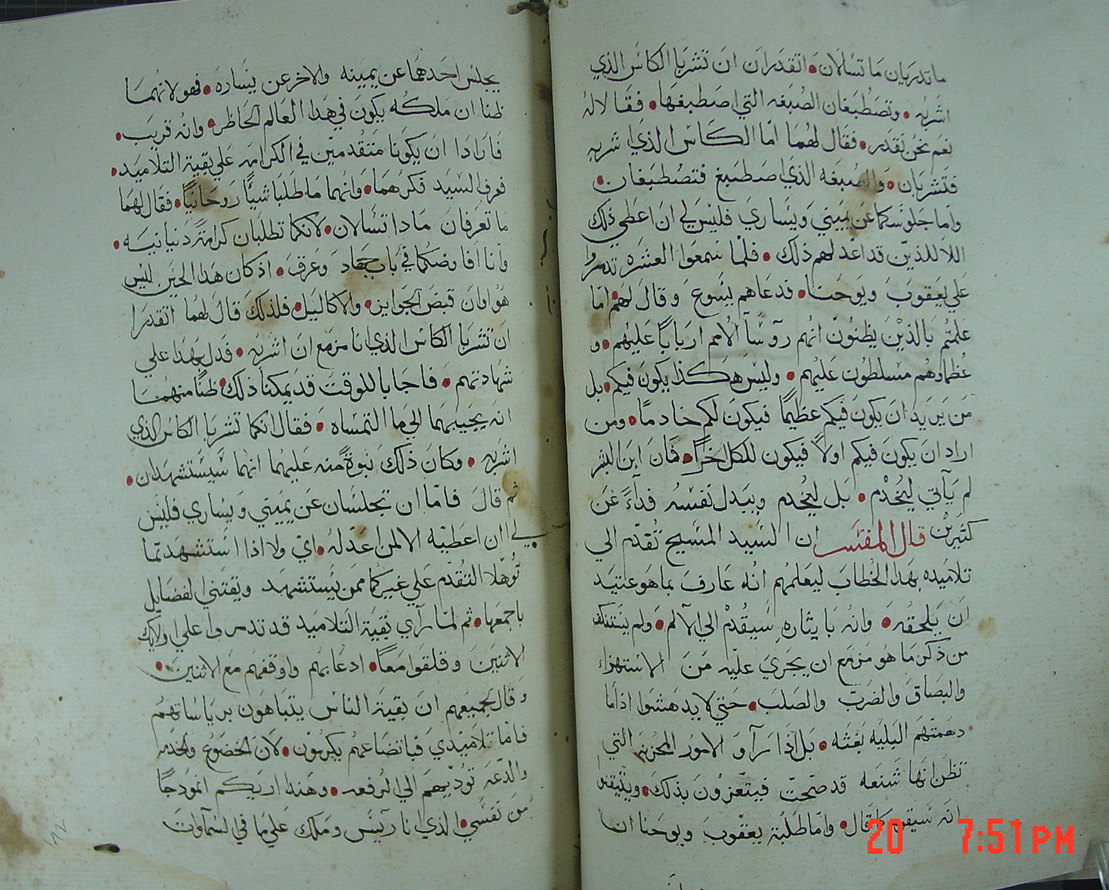 ما تدريان ما تسلان • اتقدران ان تشربا الكاس الذي
اشربه • وتصطبغان الصبغه التي اصطبغها • فقالا له
نعم نحن نقدر • فقال لهما اما الكاس الذي اشربه
فتشربان • والصبغه الذي اصطبغ فتصطبغان •
واما جلوسكما عن يميني ويساري فليس لي ان اعطي ذلك
الا للذين قد اعد لهم ذلك • فلما سمعوا العشره تذمروا
علي يعقوب ويوحنا • فدعاهم يسوع وقال لهم • اما
علمتم بالذين يظنون انهم روسا الامم اربابا عليهم • و
عظماوهم متسلطون عليهم • وليس هكذا يكون فيكم • بل
من يريد ان يكون فيكم عظيما فيكون لكم خادما • ومن
اراد ان يكون فيكم اولا فيكون للكل خرا • فان ابن البشر
لم ياتي ليخدم • بل ليخدم ويبدل نفسه فداء عن
كثيرين قال المفسر ان السيد المسيح تقدم الي
تلاميذه بهذا الخطاب ليعلمهم انه عارف بما هو عتيد
ان يلحقه • وانه بايثاره سيقدم الي الالم • ولم يستنكف
من ذكر ما هو مزمع ان يجري عليه من الاستهزاء
والبصاق والضرب والصلب • حتي لا يدهشوا اذا ما
دهمتهم البليه بغته • بل اذا راو الامور المحزنه التي
تظن انها شنعه قد صحت فيتعزون بذلك • ويتيقنو
انه سيقوم كما قال • واما طلبة يعقوب ويوحنا ان
يجلس احدهما عن يمينه والاخر عن يساره • فهو لانهما
ظنا ان ملكه يكون في هذا العالم الحاظر • وانه قريب •
فارادا ان يكونا متقدمين في الكرامه علي بقية التلاميد •
فعرف السيد فكرهما • وانهما ما طلبا شيا روحانيا • فقال لهما
ما تعرفان مادا تسالان • لانكما تطلبان كرامة دنيانيه •
وانا افاوضكما في باب جهاد وعرق • اذ كان هدا الحين ليس
هو اوان قبض الجوايز • والاكاليل • فلذلك قال لهما اتقدرا
ان تشربا الكاس الذي انا مزمع ان اشربه • فدل بهدا علي
شهادتهم • فاجابا للوقت قد يمكنا ذلك • ظنا منهما
انه يجيبهما الي ما التمساه • فقال انكما تشربا الكاس الذي
اشربه • وكان ذلك نبوة منه عليهما انهما سيستشهدان •
ثم قال فاما ان تجلسان عن يميني ويساري فليس
لي ان اعطيه الا لمن اعد له • اي ولا اذا استشهدتما
توهلا التقدم علي غيركما ممن يستشهد ويقتني الفضايل
باجمعها • ثم لما راي بقية التلاميد قد تدمروا علي اوليك
الاثنين وقلقوا معا • ادعا بهم واوقفهم مع الاثنين •
وقال لجميعهم ان بقية الناس يتباهون برياساتهم
فاما تلاميذي فباتضاعهم يكرمون • لان الخضوع والخدمه
والدعه توديهم الي الرفعه • وهندا اريكم انمودجا
من نفسي • الذي انا رييس وملك علي ما في السماوات
20 7:51 PM